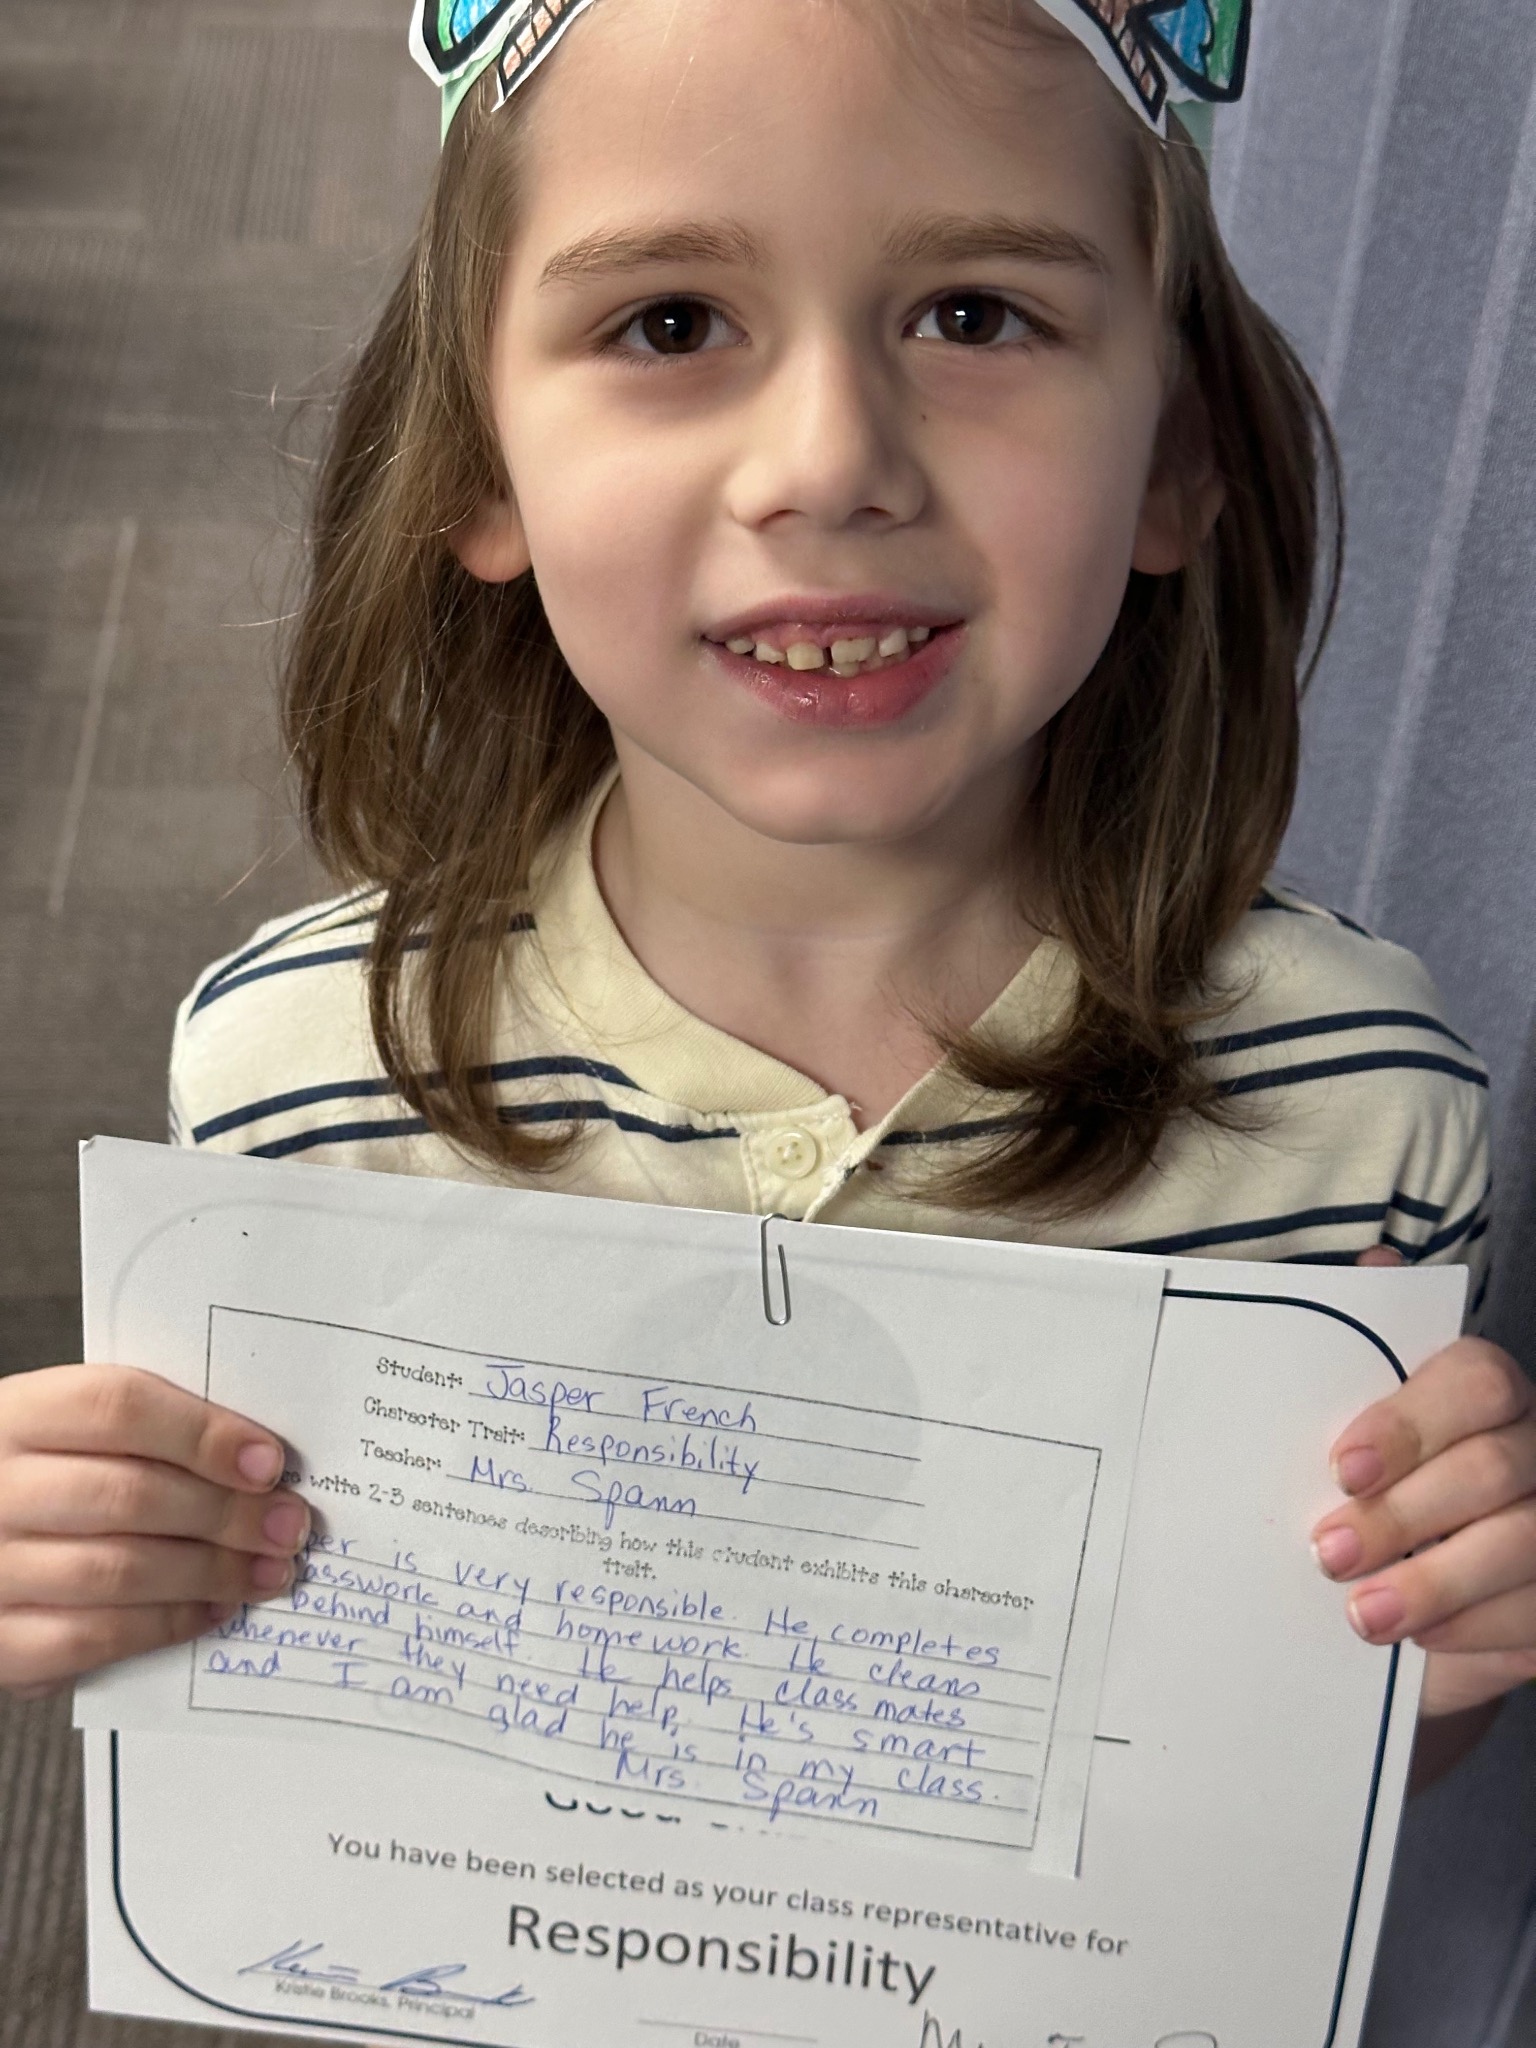 Student: Jasper French
Character Trait: Responsibility
Teacher: Mrs. Spann
write 2-3 sentences describing how this student exhibits this character
trait.
is very responsible. He completes
and homework. He cleans
behind himself. He helps class mates
whenever they need help. He's smart
and I am glad he is in my class.
Mrs. Spann
You have been selected as your class representative for
Responsibility
Kristie Brooks, Principal
Date